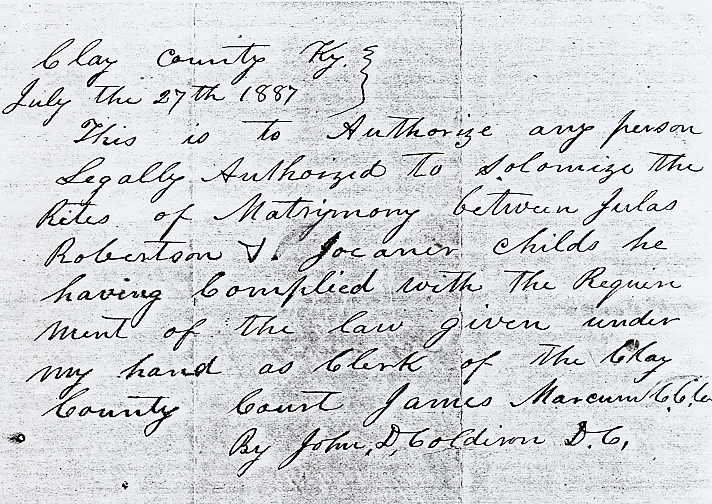 Clay County Ky.
July the 27th 1887
This is to Authorize any person
Legally Authorized to Solomize the
Rites of Matrymony between Julas
Robertson & Jocaner Childs he
having Complied with the Requir
ment of the law given under
my hand as Clerk of the Clay
County Court James Marcum C.C.C.
By John D, Coldiron D.C.